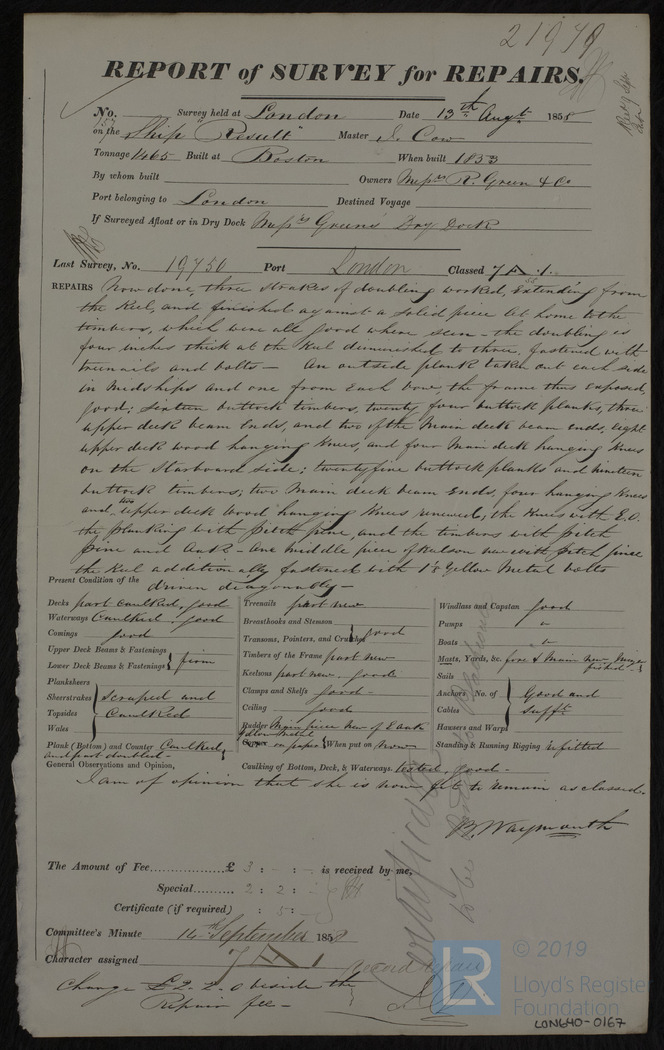 21979
REPORT of SURVEY for REPAIRS.
No. Survey held at London Date 13th Augt. 1858
on the Ship "Result" Master J. Cow
Tonnage 1465 Built at Boston When built 1853
By whom built Owners Messrs R. Green & Co
Port belonging to London Destined Voyage
If Surveyed Afloat or in Dry Dock Messrs Green's Dry Dock
Last Survey, No. 19750 Port London Classed 7 A 1.
REPAIRS Now done, three strakes of doubling worked, Extending from
the Keel, and finished against a solid piece let home to the
timbers, which were all good where seen - the doubling is
four inches thick at the Keel diminished to three, fastened with
treenails and bolts - An outside plank taken out each side
in Midships and one from Each bow, the frame thus Exposed,
good; sixteen buttock timbers, twenty four buttock planks, three
upper deck beam Ends, and two of the Main deck beam ends, eight
upper deck wood hanging Knees, and four Main deck hanging Knees
on the Starboard side; twenty five buttock planks and nineteen
buttock timbers; two Main deck beam Ends, four hanging Knees
and two upper deck Wood hanging Knees renewed; the Knees with E.O.
the planking with pitch pine, and the timbers with pitch
pine and - one middle piece of Kelson new with pitch pine
the Keel additionally fastened with Yellow Metal bolts
driven diagonally -
Present Condition of the
Decks part caulked, good
Waterways Caulked, good
Comings good
Upper Deck Beams & Fastenings
Lower Deck Beams & Fastenings } firm
Planksheers
Sheerstrakes
Topsides
Wales
} Scraped and Caulked
Plank (Bottom) and Counter Caulked,
and part doubled -
Treenails part new
Breasthooks and Stemson
Transoms, Pointers, and Crutches } good
Timbers of the Frame part new
Keelsons part new, good
Clamps and Shelfs good -
Ceiling good
Rudder Main piece New of E oak
Yellow Metal
Copper on paper } When put on Now
Caulking of Bottom, Deck, & Waterways. tested, good -
Windlass and Capstan good
Pumps "
Boats "
Masts, Yards, &c. fore & Main New, Mizen
Sails
Anchors No. of
Cables
Hausers and Warps
} Good and sufft.
Standing & Running Rigging refitted
General Observations and Opinion,
I am of opinion that she is now fit to remain as classed.
B. Waymouth
Certificate
to be
The Amount of Fee................ £ 3 : - : - is received by me,
Special.......... 2 : 2 : -
Certificate (if required) : 5 : -
Committee's Minute 14th September 1858
Character assigned 7 A 1
Change £2.2.0 beside the
Repair fee -
LR
© 2019
Lloyd's Register
Foundation
LON640-0167